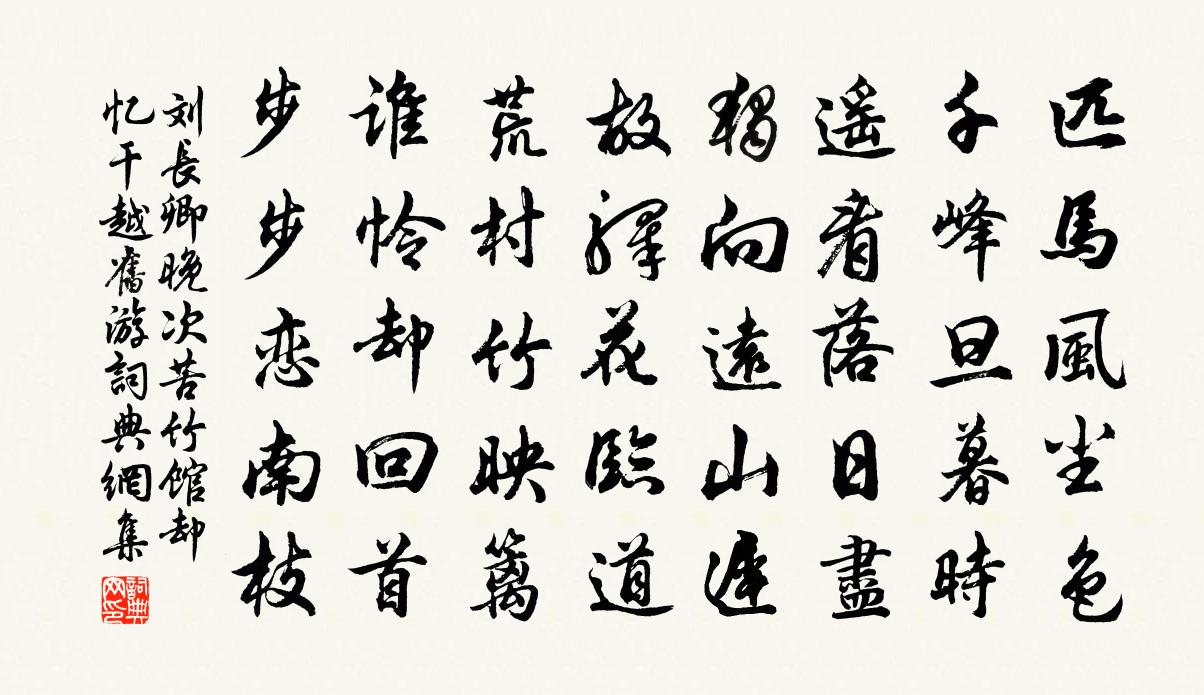 匹馬風尘色
千峰旦暮時
遥看落日盡
獨向遠山遲
故驛花臨道
荒村竹映篱
谁怜却回首
步步恋南枝
刘長卿晚次苦竹館却
忆干越舊游詞典網集
詞典网印